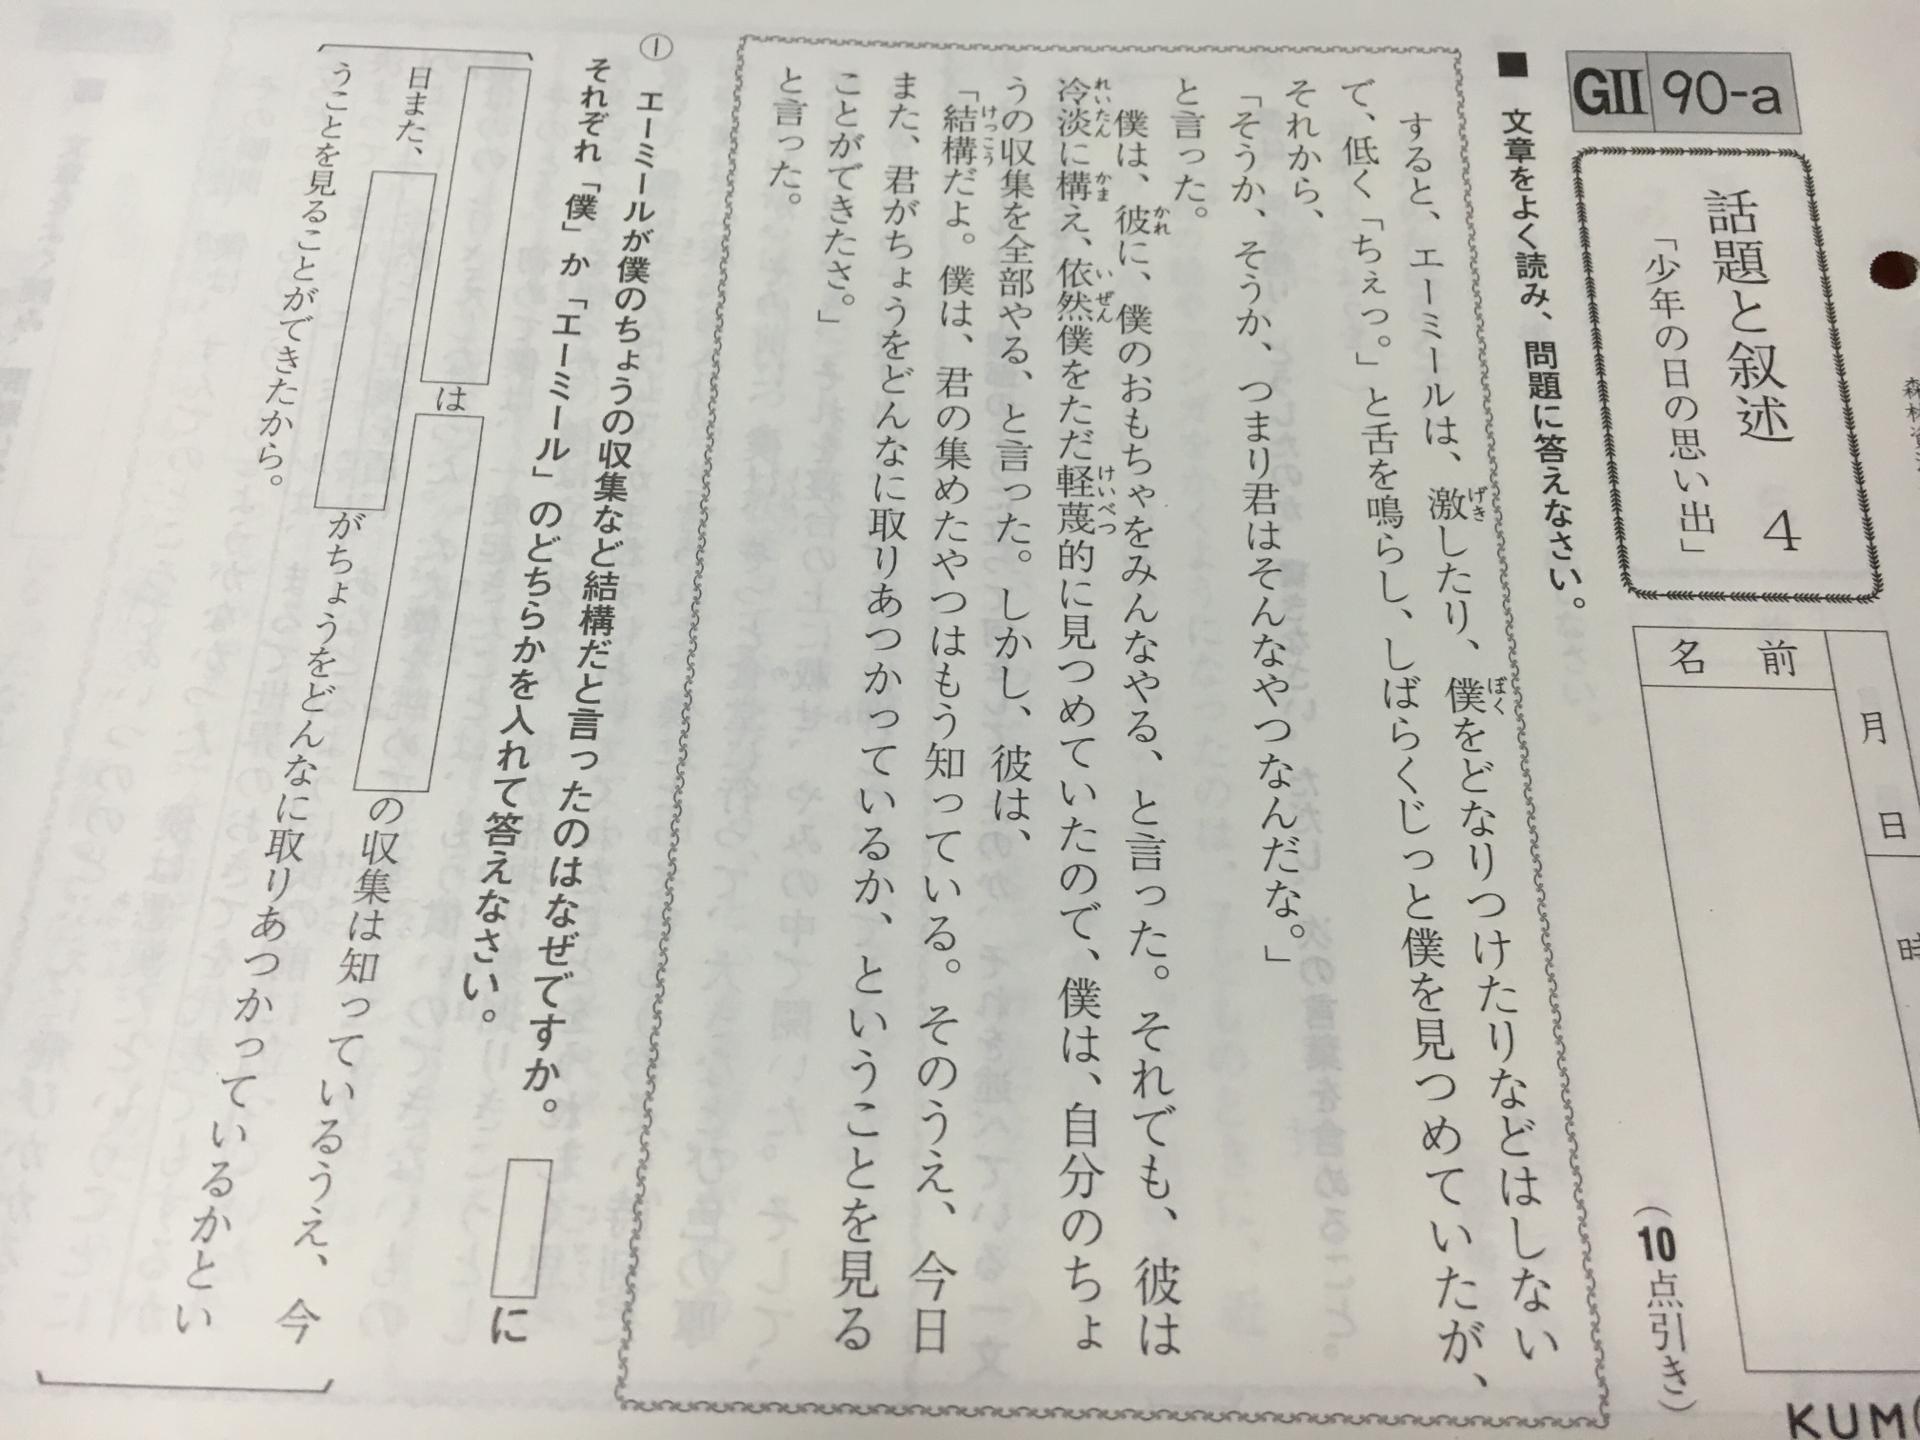 GⅡ 90-a
話題と叙述 4
「少年の日の思い出」
月 日
名前
(10点引き)
■ 文章をよく読み、問題に答えなさい。
すると、エーミールは、激したり、僕をどなりつけたりなどはしない
で、低く「ちぇっ。」と舌を鳴らし、しばらくじっと僕を見つめていたが、
それから、
「そうか、そうか、つまり君はそんなやつなんだな。」
と言った。
僕は、彼に、僕のおもちゃをみんなやる、と言った。それでも、彼は
冷淡に構え、依然僕をただ軽蔑的に見つめていたので、僕は、自分のちょ
うの収集を全部やる、と言った。しかし、彼は、
「結構だよ。僕は、君の集めたやつはもう知っている。そのうえ、今日
また、君がちょうをどんなに取りあつかっているか、ということを見る
ことができたさ。」
と言った。
① エーミールが僕のちょうの収集など結構だと言ったのはなぜですか。 に
それぞれ「僕」か「エーミール」のどちらかを入れて答えなさい。
は の収集は知っているうえ、今
日また、 がちょうをどんなに取りあつかっているかとい
うことを見ることができたから。